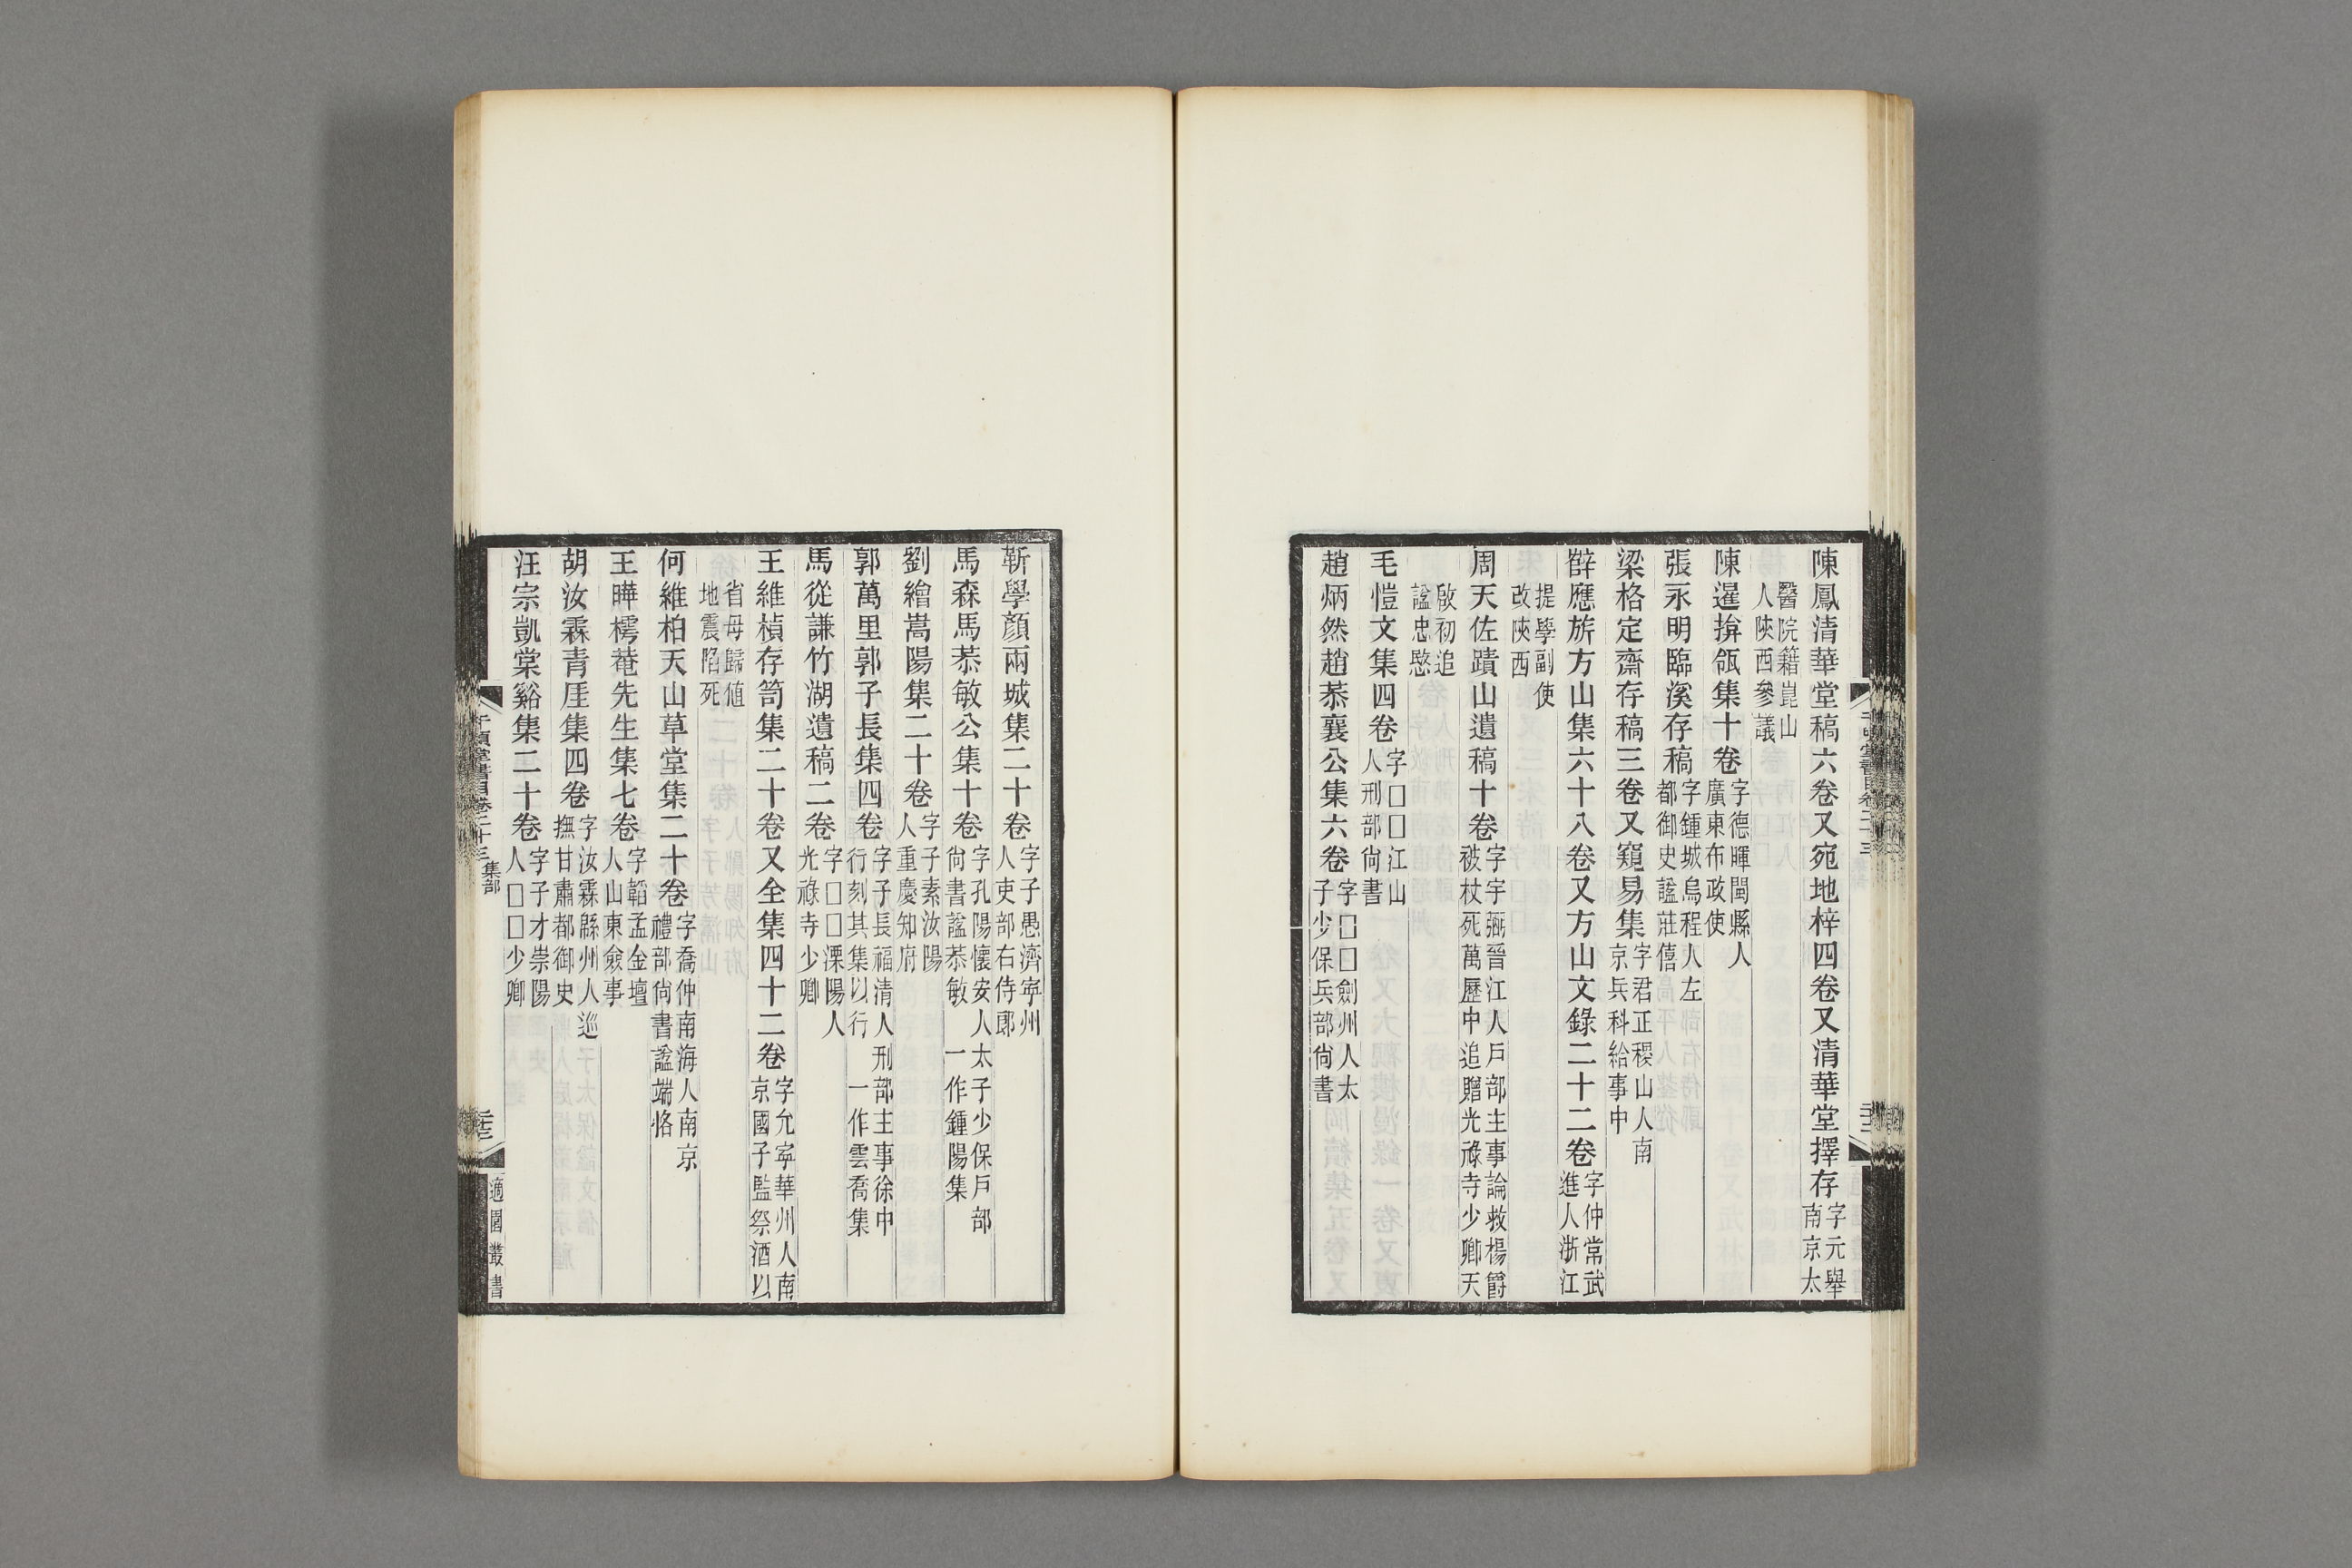 陳鳳清華堂稿六卷又宛地梓四卷又清華堂擇存字元舉南京太
醫院籍崑山人陝西參議
陳暹揜瓴集十卷字德暉閩縣人廣東布政使
張永明臨溪存稿字鍾城烏程人左都御史諡莊僖
梁格定齋存稿三卷又窺易集字君正稷山人南京兵科給事中
薛應旂方山集六十八卷又方山文錄二十二卷字仲常武進人浙江
提學副使改陝西
周天佐蹟山遺稿十卷字宇弼晉江人戶部主事論救楊爵被杖死萬歷中追贈光祿寺少卿天
啟初追諡忠愍
毛愷文集四卷字□□江山人刑部尚書
趙炳然趙恭襄公集六卷字□□劍州人太子少保兵部尚書
靳學顏兩城集二十卷字子愚濟寧州人吏部右侍郎
馬森馬恭敏公集十卷字孔陽懷安人太子少保戶部尚書諡恭敏　一作鍾陽集
劉繪嵩陽集二十卷字子素汝陽人重慶知府
郭萬里郭子長集四卷字子長福清人刑部主事徐中行刻其集以行　一作雲喬集
馬從謙竹湖遺稿二卷字□□溧陽人光祿寺少卿
王維楨存笥集二十卷又全集四十二卷字允寧華州人南京國子監祭酒以
省母歸值地震陷死
何維柏天山草堂集二十卷字喬仲南海人南京禮部尚書諡端恪
王曄樗菴先生集七卷字韜孟金壇人山東僉事
胡汝霖青厓集四卷字汝霖緜州人巡撫甘肅都御史
汪宗凱棠谿集二十卷字子才崇陽人□□少卿
千頃堂書目卷二十三集部
適園叢書